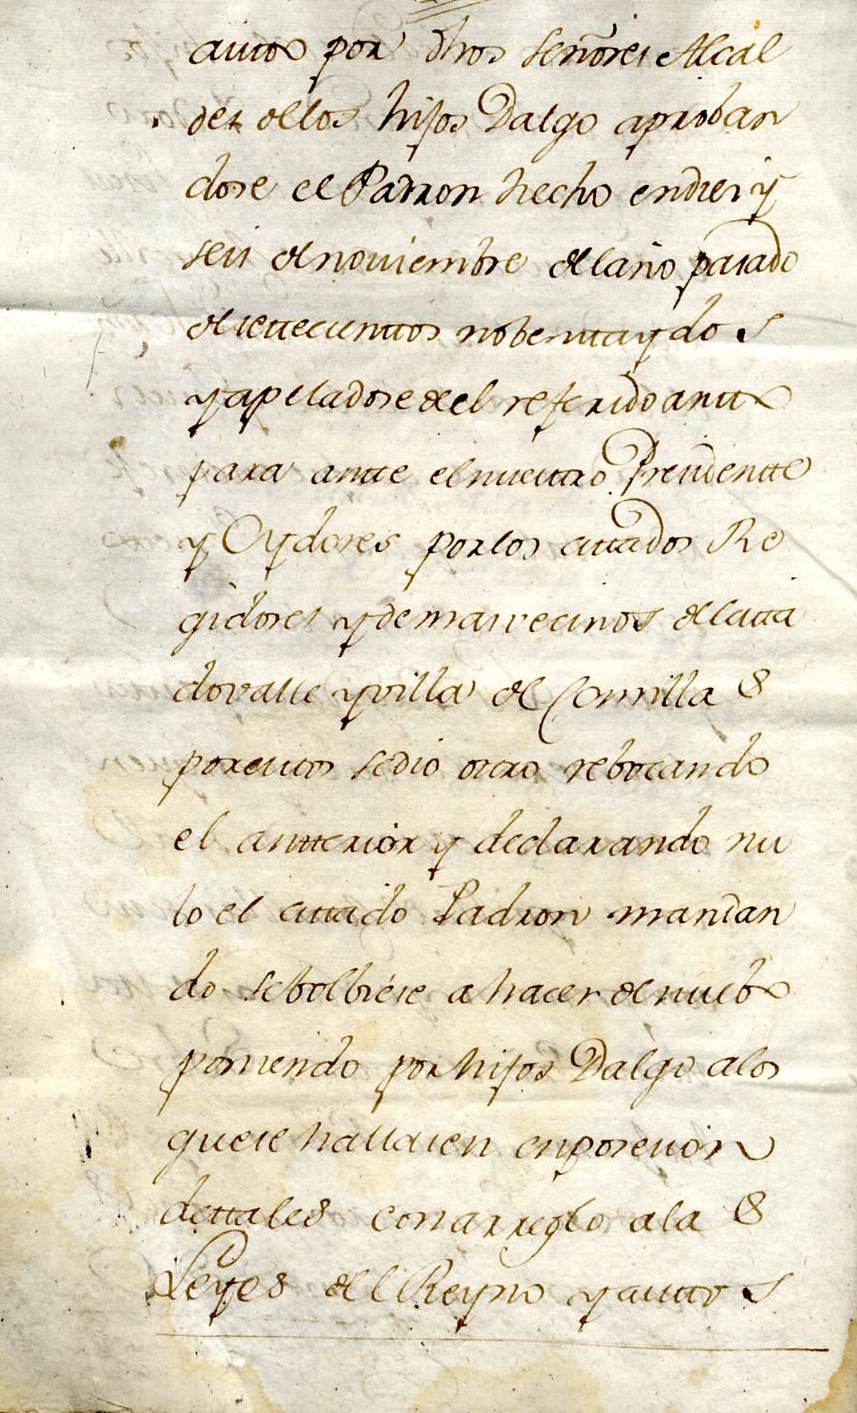 autto por dhos señores Alcal
des de los hijos Dalgo aproban
dose el Padron hecho en diez y
seis de noviembre del año pasado
de settecienttos nobenttay dos
y apeladose de el referido autto
para antte el nuesttro Presidentte
y Oydores por los cittados Re
gidores y demas vecinos del citta
do valle y villa de Comillas
por esttos se dio ottro rebocando
el antterior y declarando nu
lo el cittado Padron mandan
do se bolbiese a hacer de nuebo
poniendo por hijos Dalgo a los
que se hallasen en posesion
de ttales con arreglo a las
Leyes del Reyno y auttos